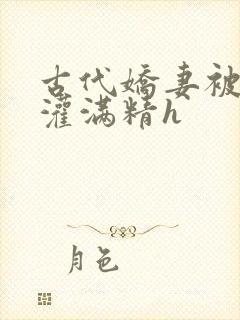 古代嬌妻被
灌滿精h
月色